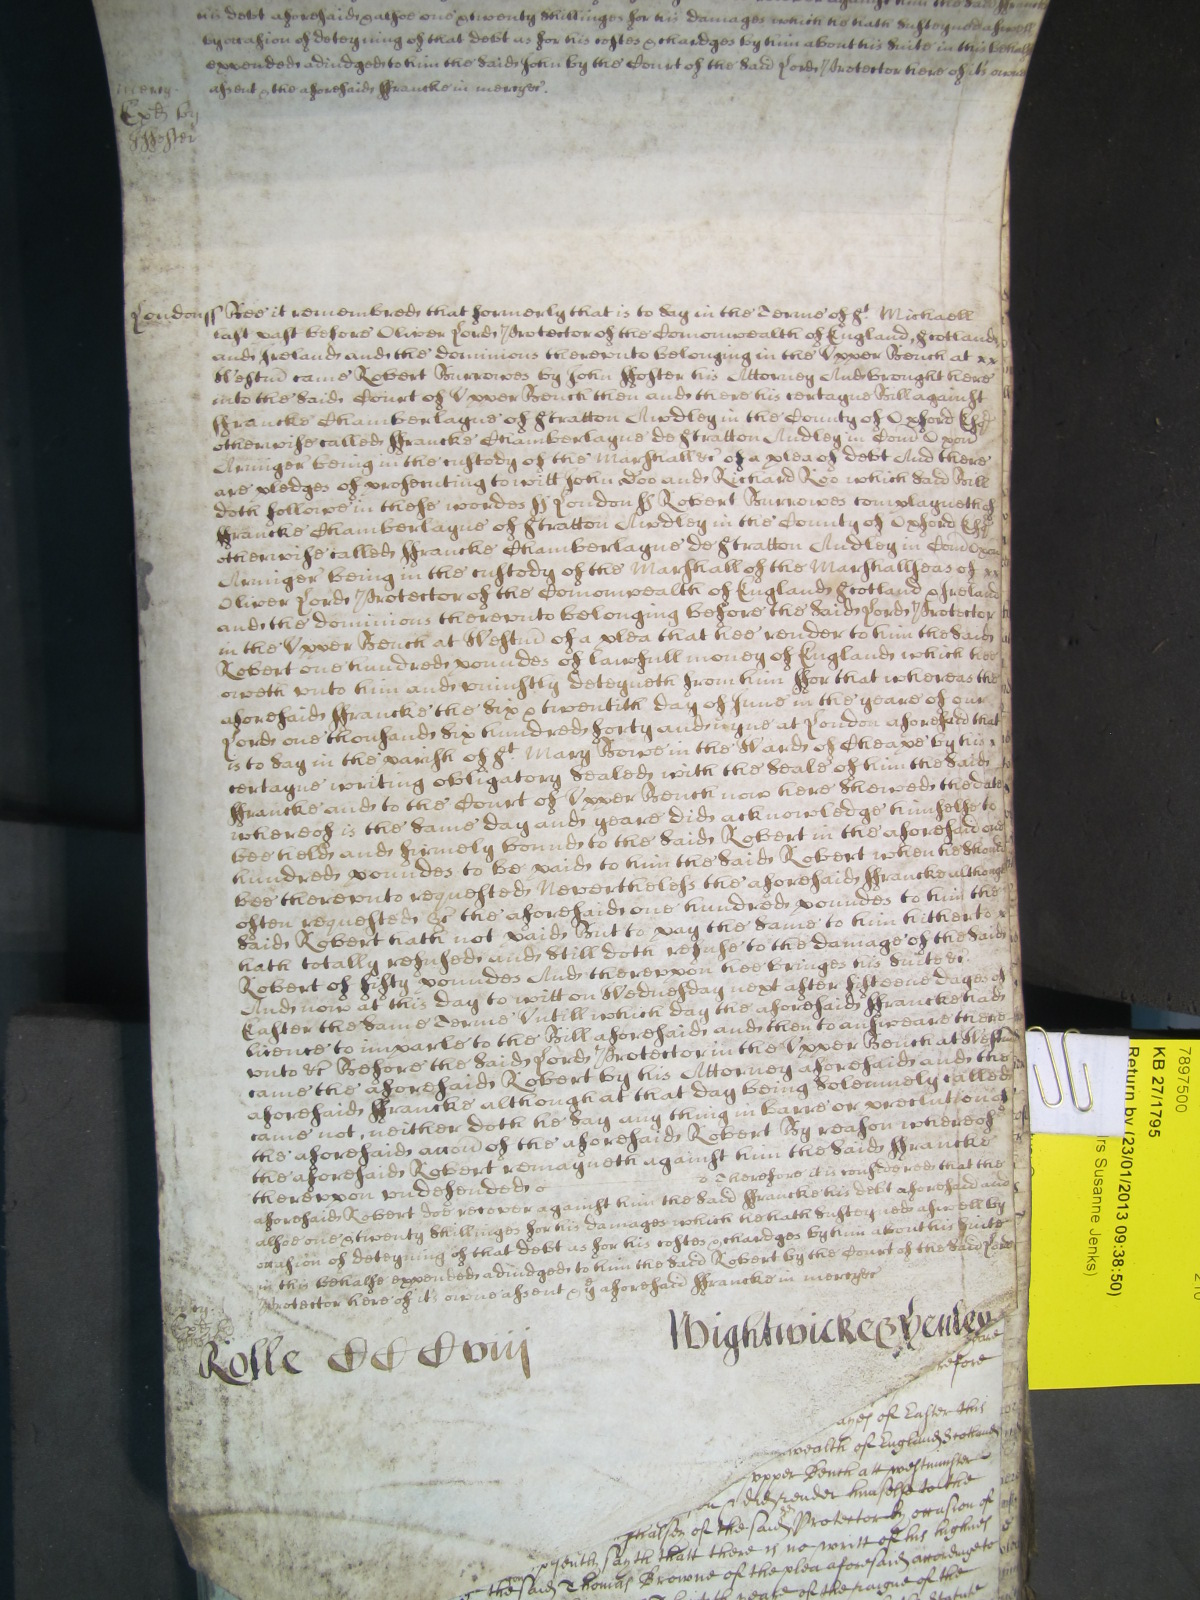 his debt aforesaid & alsoe one & twenty shillinges for his damages which he hath susteyned aswell
by occasion of deteyning of that debt as for his costes & chardges by him about his suite in this behalfe
expended adiudged to him the said John by the Court of the said Lord Protector here of its owne
assent & the aforesaid ffrancke in mercye &c.
mercy
Exd by
J ffoster
London ss Bee it remembred that formerly that is to say in the Terme of St Michaell
last past before Oliver Lord Protector of the Comonwealth of England, Scotland
and Ireland and the dominions thereunto belonging in the Upper Bench at
Westm came Robert Burrowes by John ffoster his Attorney And brought here
into the said Court of Upper Bench then and there his certayne Bill against
ffrancke Chamberlayne of Stratton Awdley in the County of Oxford Esqr
otherwise called ffrancke Chamberlayne de Stratton Audley in Com Oxon
Armiger being in the custody of the Marshall &c of a plea of debt And there
are pledges of prosecuting to witt John Doo and Richard Roo which said Bill
doth followe in these wordes ss London ss Robert Burrowes complayneth of
ffrancke Chamberlayne of Stratton Awdley in the County of Oxford Esqr
otherwise called ffrancke Chamberlayne de Stratton Audley in Com Oxon
Armiger being in the custody of the Marshall of the Marshallseas of
Oliver Lord Protector of the Comonwealth of England Scotland & Ireland
and the dominions thereunto belonging before the said Lord Protector
in the Upper Bench at Westm of a plea that hee render to him the said
Robert one hundred poundes of lawfull money of England which hee
oweth unto him and uniustly deteyneth from him ffor that whereas the
aforesaid ffrancke the six & twentith day of June in the yeare of our
Lord one thousand six hundred forty and nyne at London aforesaid that
is to say in the parish of St Mary Bowe in the Ward of Cheape by his
certayne writing obligatory sealed with the seale of him the said
ffrancke and to the Court of Upper Bench now here shewed the date
whereof is the same day and yeare did acknowledge himselfe to
bee held and firmely bound to the said Robert in the aforesaid one
hundred poundes to be paid to him the said Robert when he should
bee thereunto requested Neverthelesse the aforesaid ffrancke although
often requested &c the aforesaid one hundred poundes to him the
said Robert hath not paid But to pay the same to him hitherto
hath totally refused and still doth refuse to the damage of the said
Robert of fifty poundes And thereupon hee bringes his suite &c.
And now at this day to witt on Wednesday next after fifteene dayes of
Easter the same Terme Untill which day the aforesaid ffrancke had
licence to imparle to the Bill aforesaid and then to answeare there
unto &c Before the said Lord Protector in the Upper Bench at Westm
came the aforesaid Robert by his Attorney aforesaid and the
aforesaid ffrancke although at that day being solemnely called
came not, neither doth he say any thing in barre or preclution of
the aforesaid accon of the aforesaid Robert By reason whereof
the aforesaid Robert remayneth against him the said ffrancke
thereupon undefended Therefore it is considered that the
aforesaid Robert doe recover against him the said ffrancke his debt aforesaid and
alsoe one & twenty shillinges for his damages which he hath susteyned aswell by
occasion of deteyning of that debt as for his costes & chardges by him about his suite
in this behalfe expended adiudged to him the said Robert by the Court of the said Lord
Protector here of its owne assent & ye aforesaid ffrancke in mercye &c
mercy
Wightwicke & Henley
Rolle CCCCviii
refore
ayes of Easter this
wealth of England Scotland
upper Bench att westminster
did render himselfe to the
of the said Protector by occasion of
sayth thatt there is no writt of his highnes
the said Thomas Browne of the plea aforesaid accordinge to
yeare of the raigne of the
Statute
7897500
KB 27/1795
Return by (23/01/2013 09:38:50)
rs Susanne Jenks)